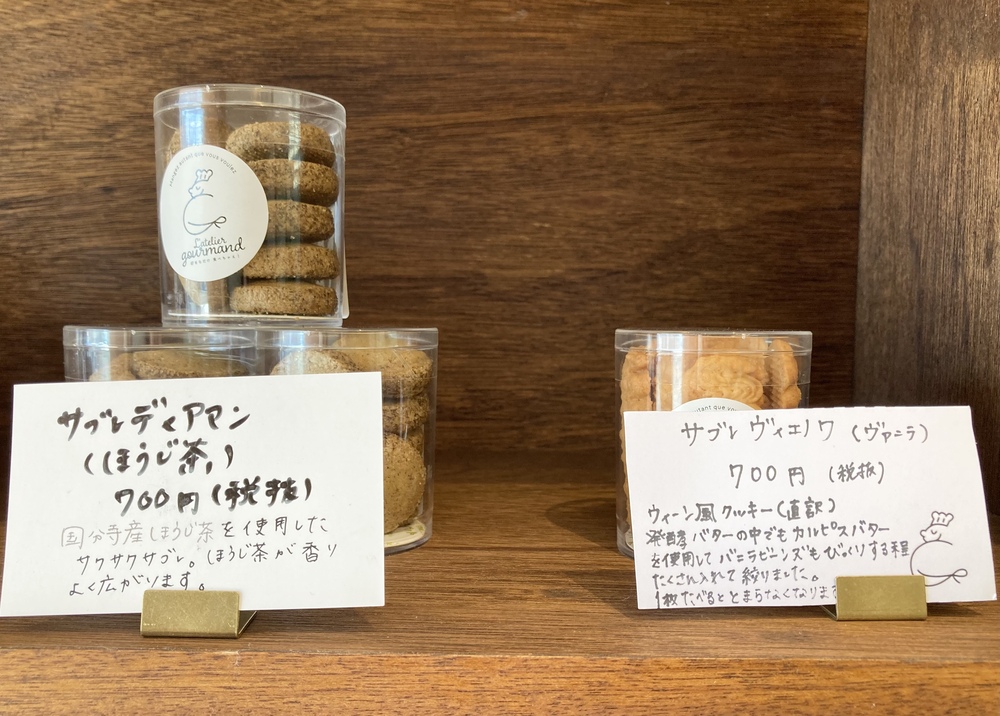 L'atelier
gourmand
サブレディアマン
(ほうじ茶)
700円(税抜)
国分寺産ほうじ茶を使用した
サクサクサブレ。ほうじ茶が香り
よく広がります。
サブレ ヴィエノワ (ヴァニラ)
700円 (税抜)
ウィーン風クッキー(直訳)
発酵バターの中でもカルピスバター
を使用して バニラビーンズもびっくりする程
たくさん入れて絞りました。
1枚たべるととまらなくなります